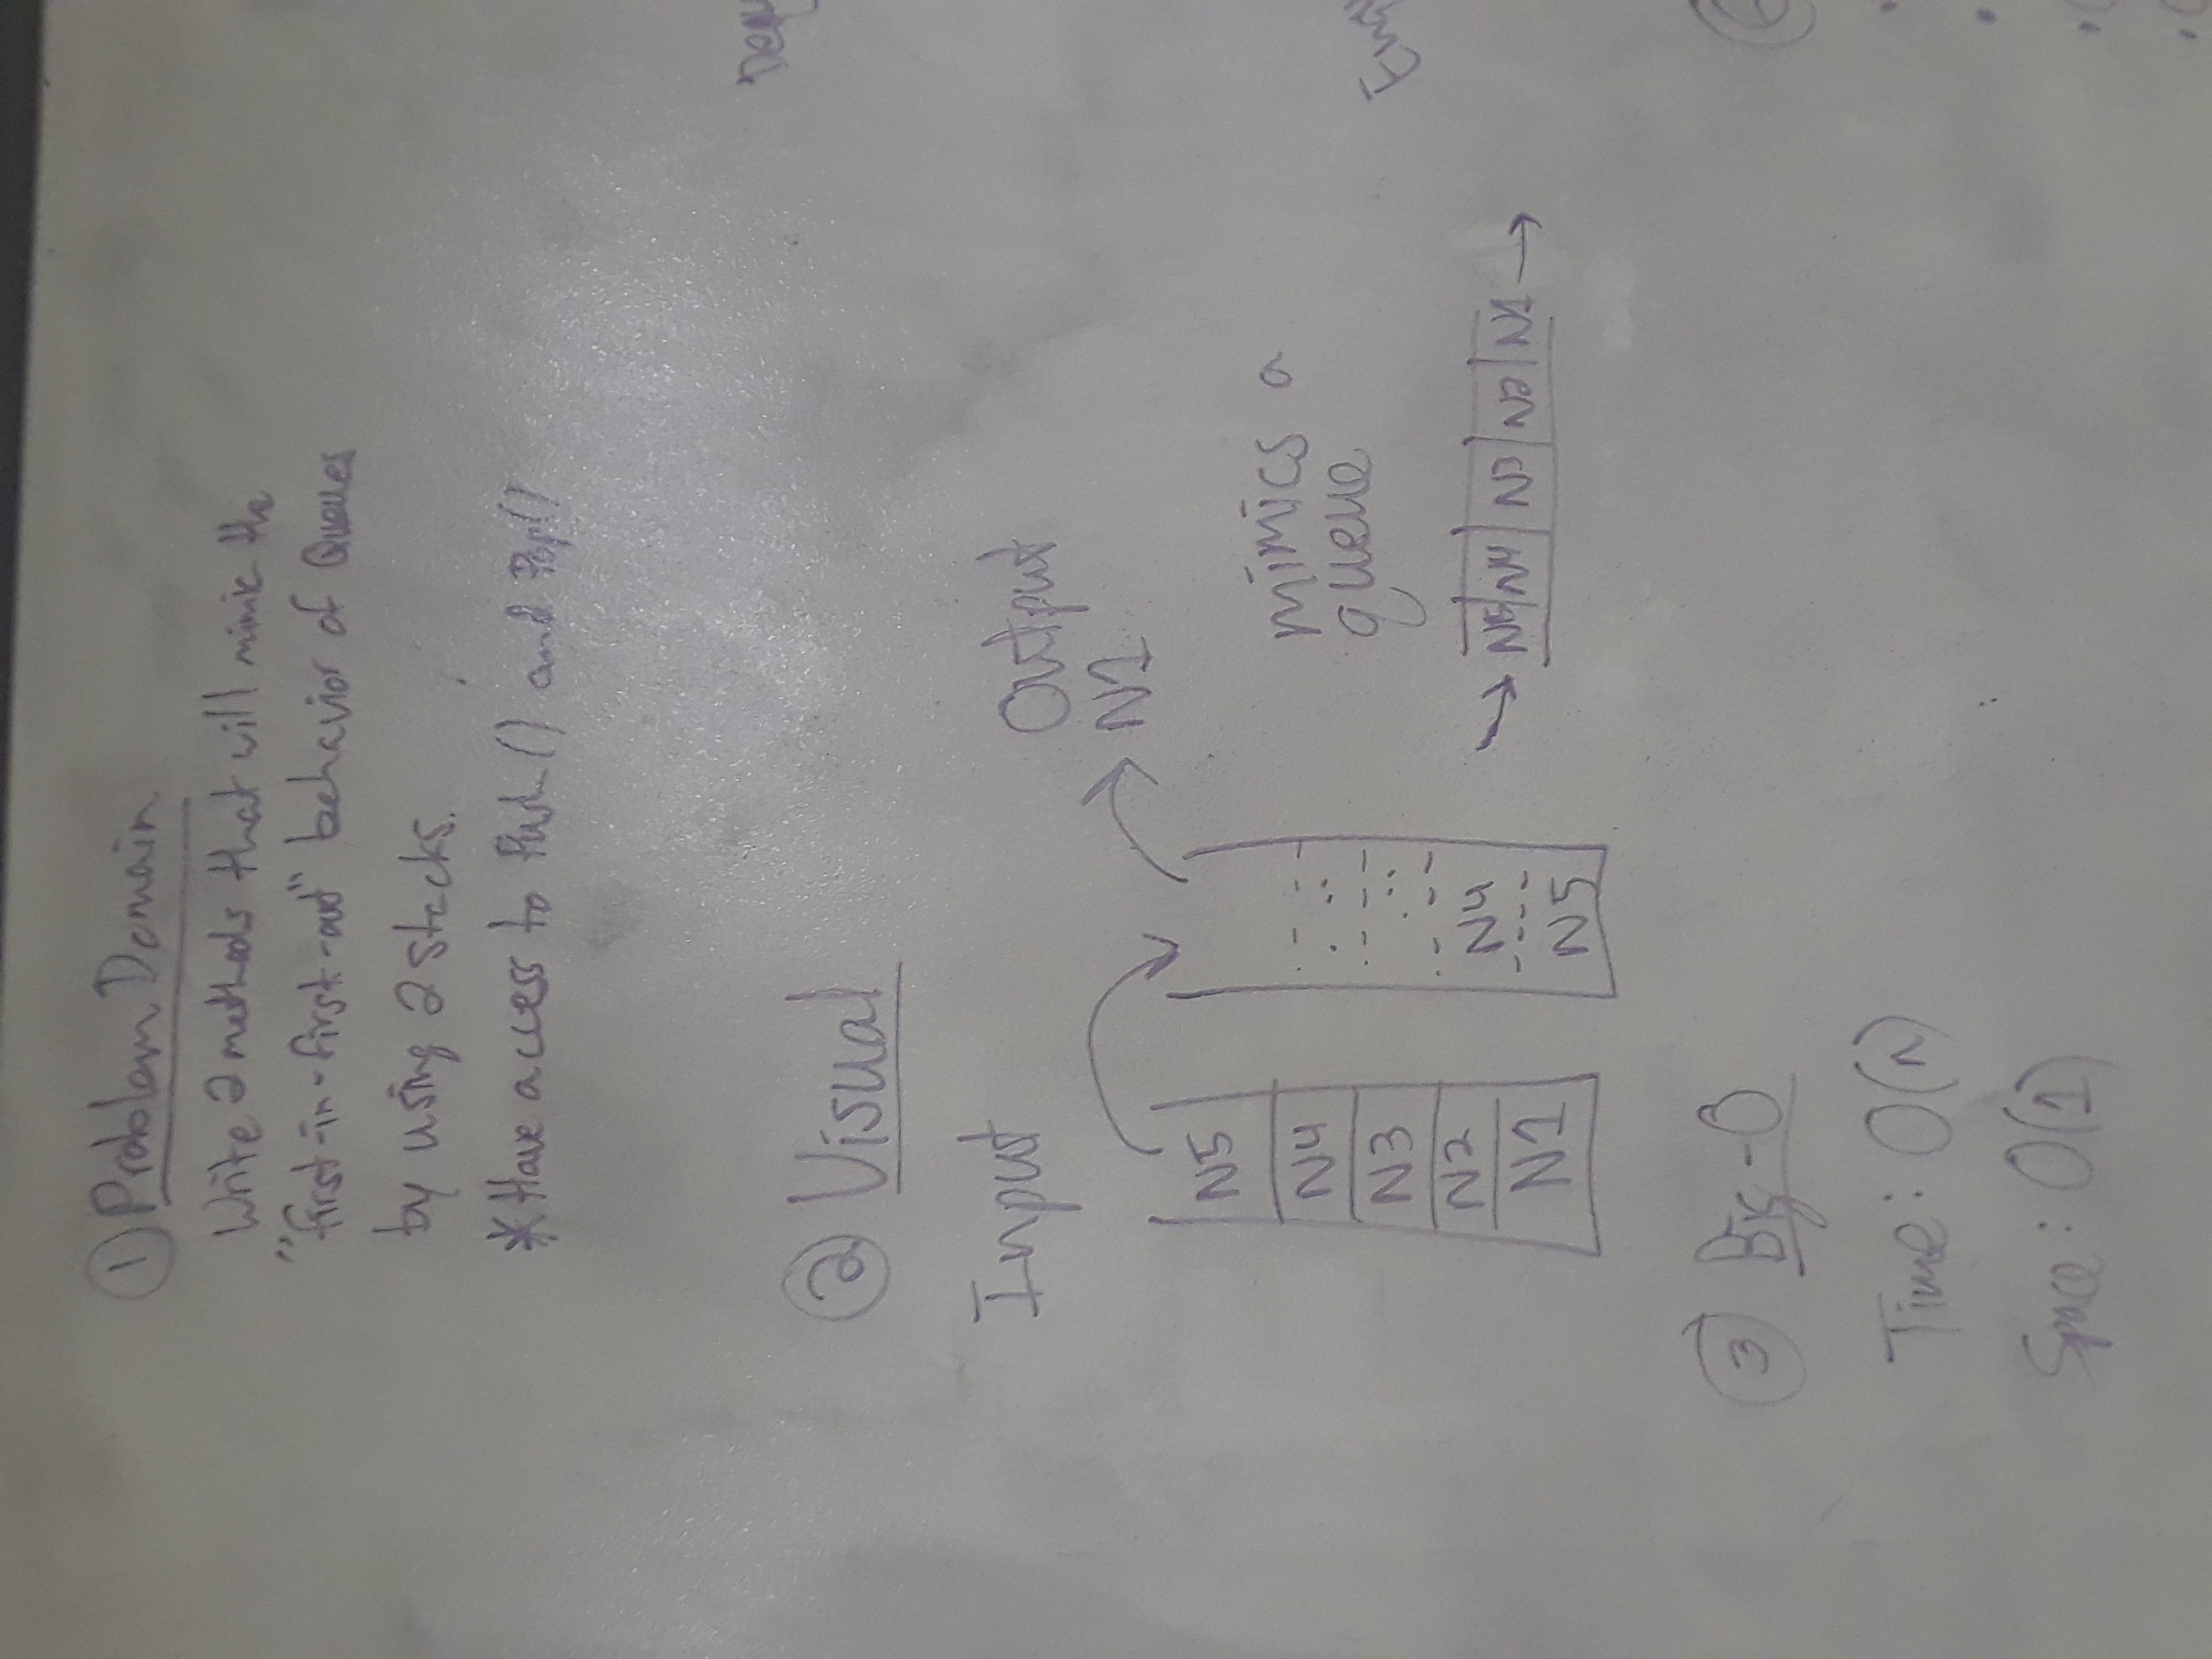 ① Problem Domain
Write 2 methods that will mimic the
"first-in-first-out" behavior of Queues
by using 2 stacks.
* Have access to Push() and Pop()
② Visual
Input
Output
N1
N5
N4
N3
N2
N1
N4
N5
mimics a
queue
N5 N4 N3 N2 N1
③ Big-O
Time: O(n)
Space: O(1)